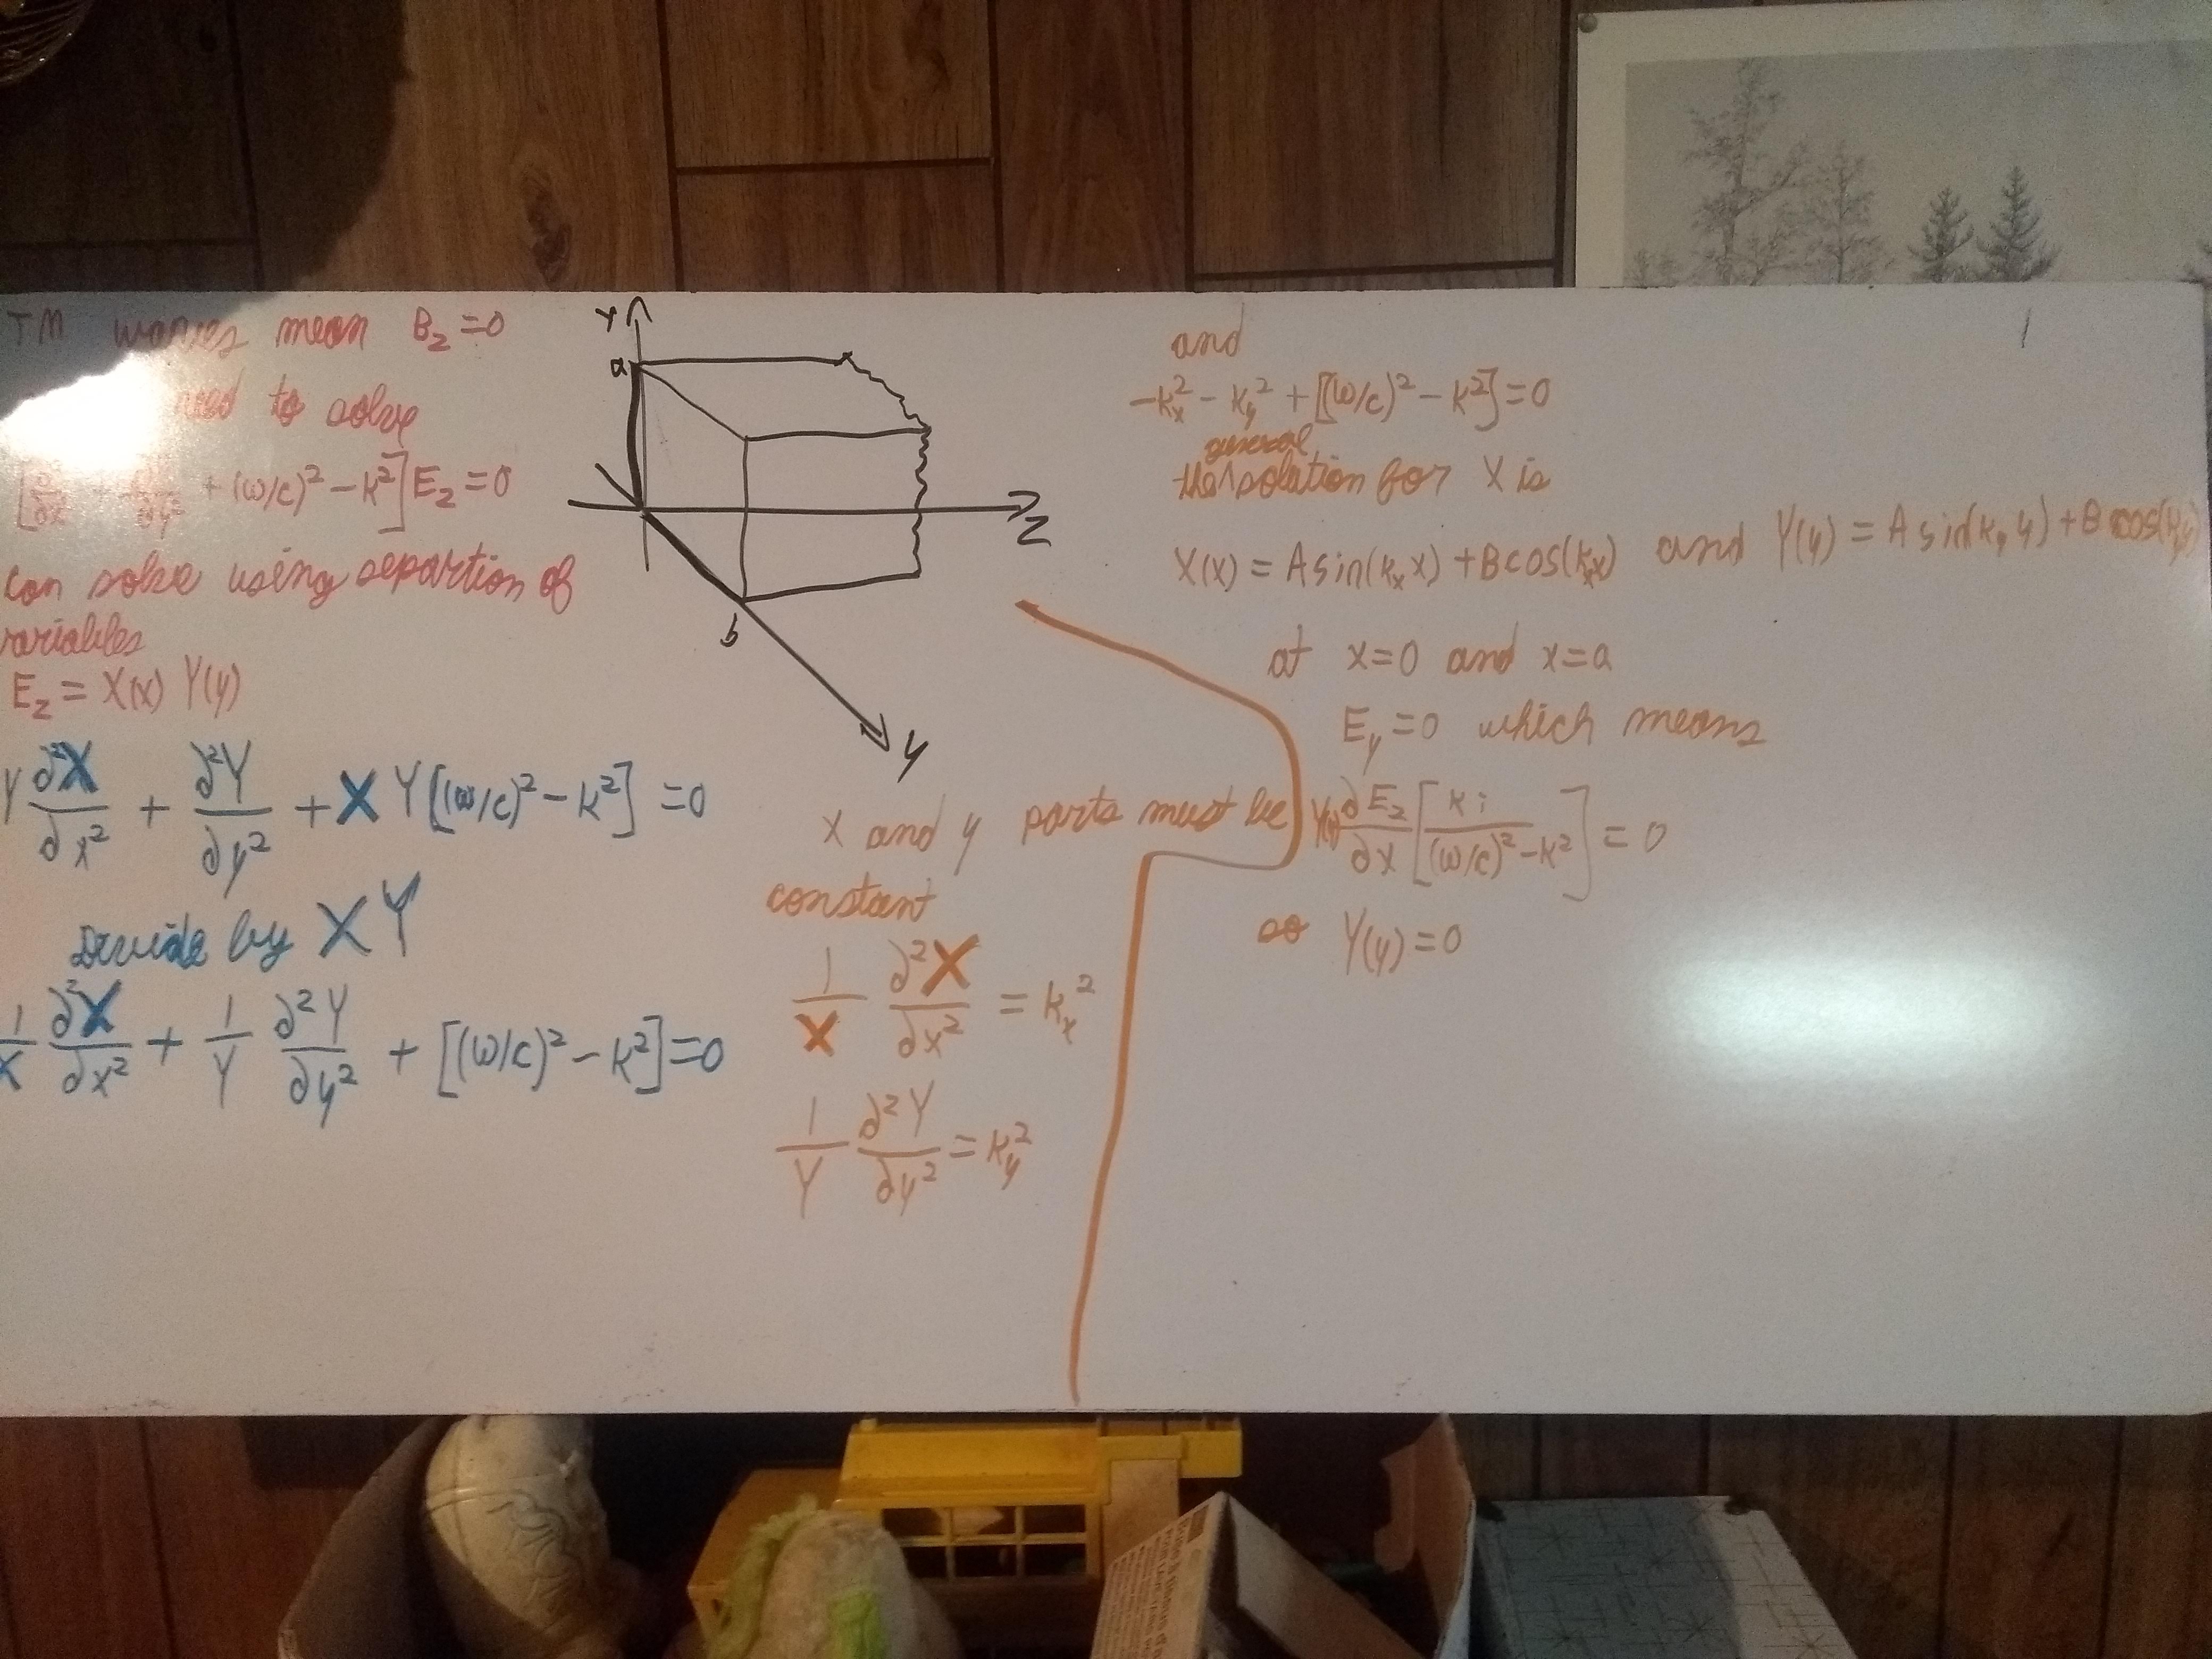 TM waves mean B_z = 0
need to solve
[∂²/∂x² + ∂²/∂y² + (ω/c)² − k²] E_z = 0
can solve using separtion of
variables
E_z = X(x) Y(y)
Y ∂²X/∂x² + ∂²Y/∂y² + X Y [(ω/c)² − k²] = 0
Divide by XY
1/X ∂²X/∂x² + 1/Y ∂²Y/∂y² + [(ω/c)² − k²] = 0
x
a
z
b
y
x and y parts must be
constant
1/X ∂²X/∂x² = k_x²
1/Y ∂²Y/∂y² = k_y²
and
−k_x² − k_y² + [(ω/c)² − k²] = 0
general
the solution for X is
X(x) = A sin(k_x x) + B cos(k_x x) and Y(y) = A sin(k_y y) + B cos(k_y y)
at x=0 and x=a
E_y = 0 which means
Y(y) ∂E_z/∂x [k i/((ω/c)² − k²)] = 0
so Y(y) = 0